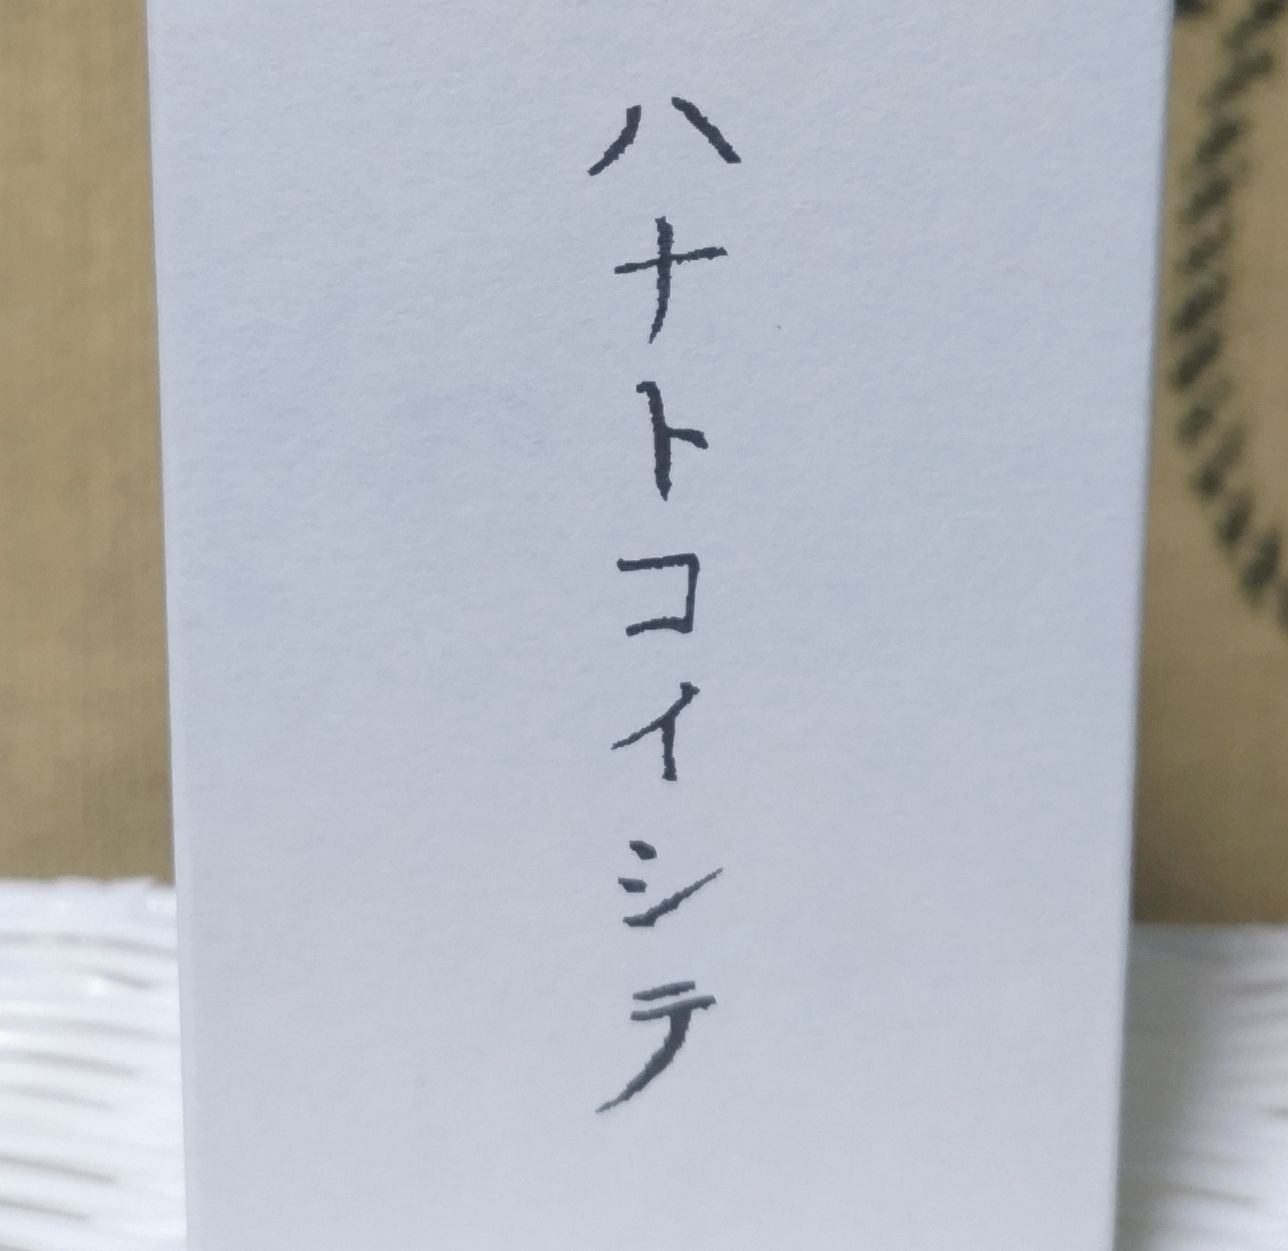 ハナトコイシテ